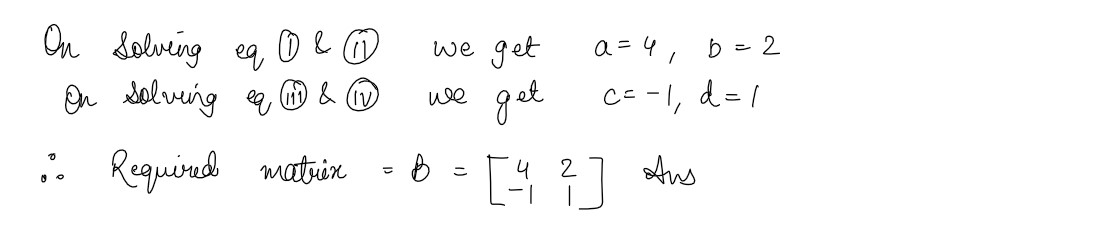 On solving eq (i) & (ii) we get a = 4, b = 2
On solving eq (iii) & (iv) we get c = -1, d = 1
∴ Required matrix = B = [4 2
-1 1] Ans